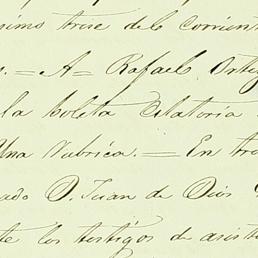 simo trece del corrient
s.=A= Rafael Orti
la boleta Citatoria
Una rubrica.= En tre
ado D. Juan de Dios
te los testigos de asist